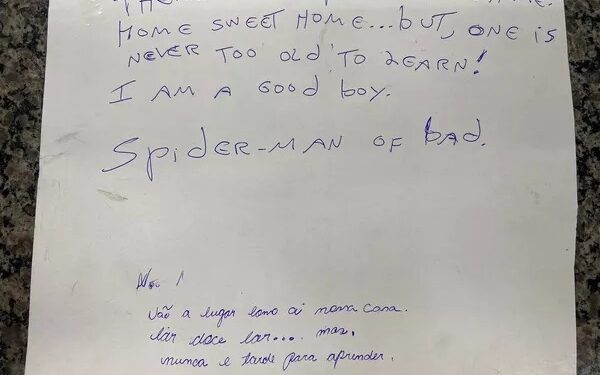 HOME SWEET HOME...BUT, ONE IS
NEVER TOO OLD TO LEARN!
I AM A GOOD BOY.
SPIDER-MAN OF BAD.
Não a lugar como a nossa casa.
lar doce lar... mas,
nunca e tarde para aprender.